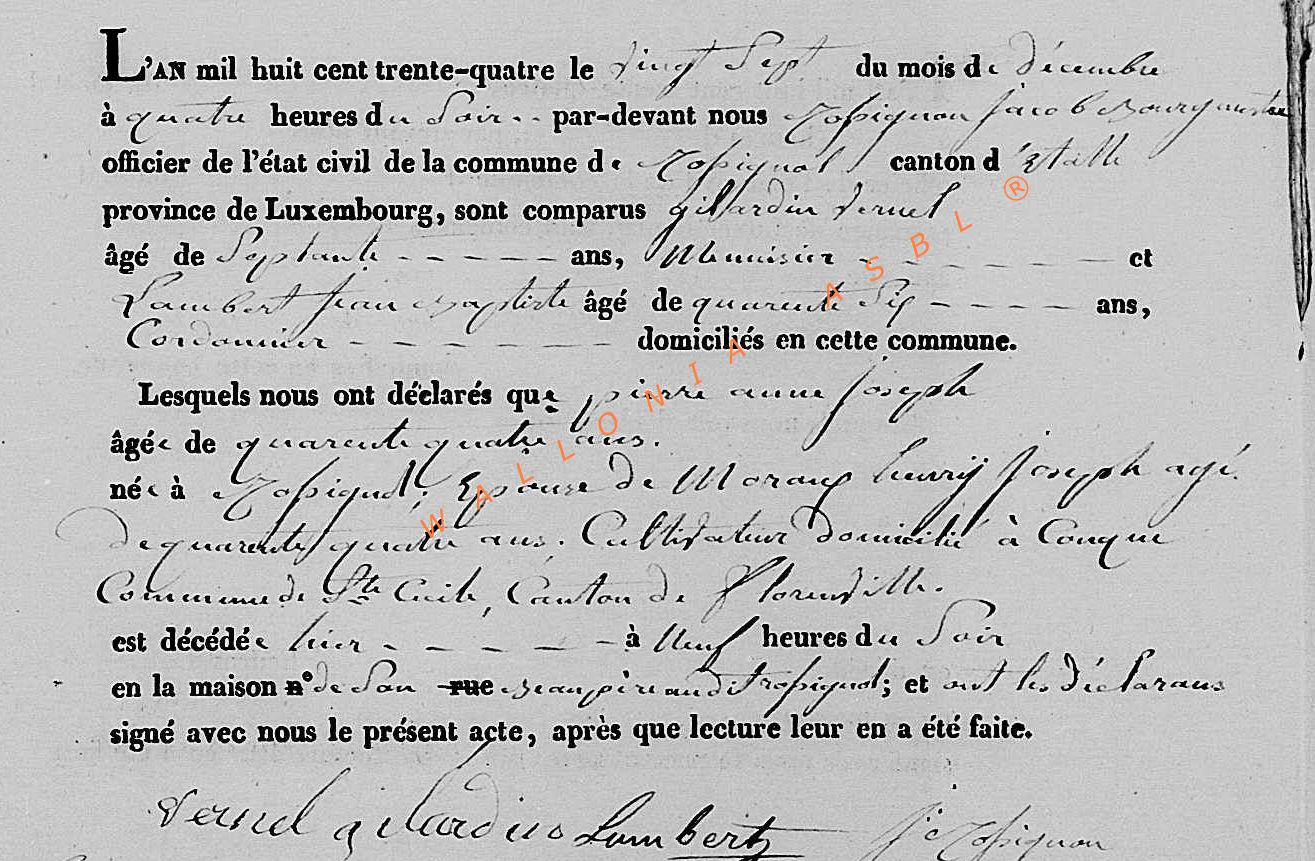 L'AN mil huit cent trente-quatre le vingt Sept du mois de décembre
à quatre heures du Soir par-devant nous Rossignon jacob Bourgmestre
officier de l'état civil de la commune de Rossignol canton d'Etalle
province de Luxembourg, sont comparus gillardin vernel
âgé de Septante ans, Menuisier et
Lambert jean Baptiste âgé de quarente Sep ans,
Cordonnier domiciliés en cette commune.
Lesquels nous ont déclarés que pierre anne joseph
âgée de quarente quatre ans.
née à Rossignol. Epouse de Moraux henrij joseph agé
de quarente quatre ans. Cultivateur domicilié à Conque
Commune de Ste Cecile, Canton de Florenville.
est décédée hier à Neuf heures du Soir
en la maison n° de Son rue Beaupère audit rossignol; et ont les déclarans
signé avec nous le présent acte, après que lecture leur en a été faite.
vernel gilardin Lambert J Rossignon
WALLONIA ASBL ®